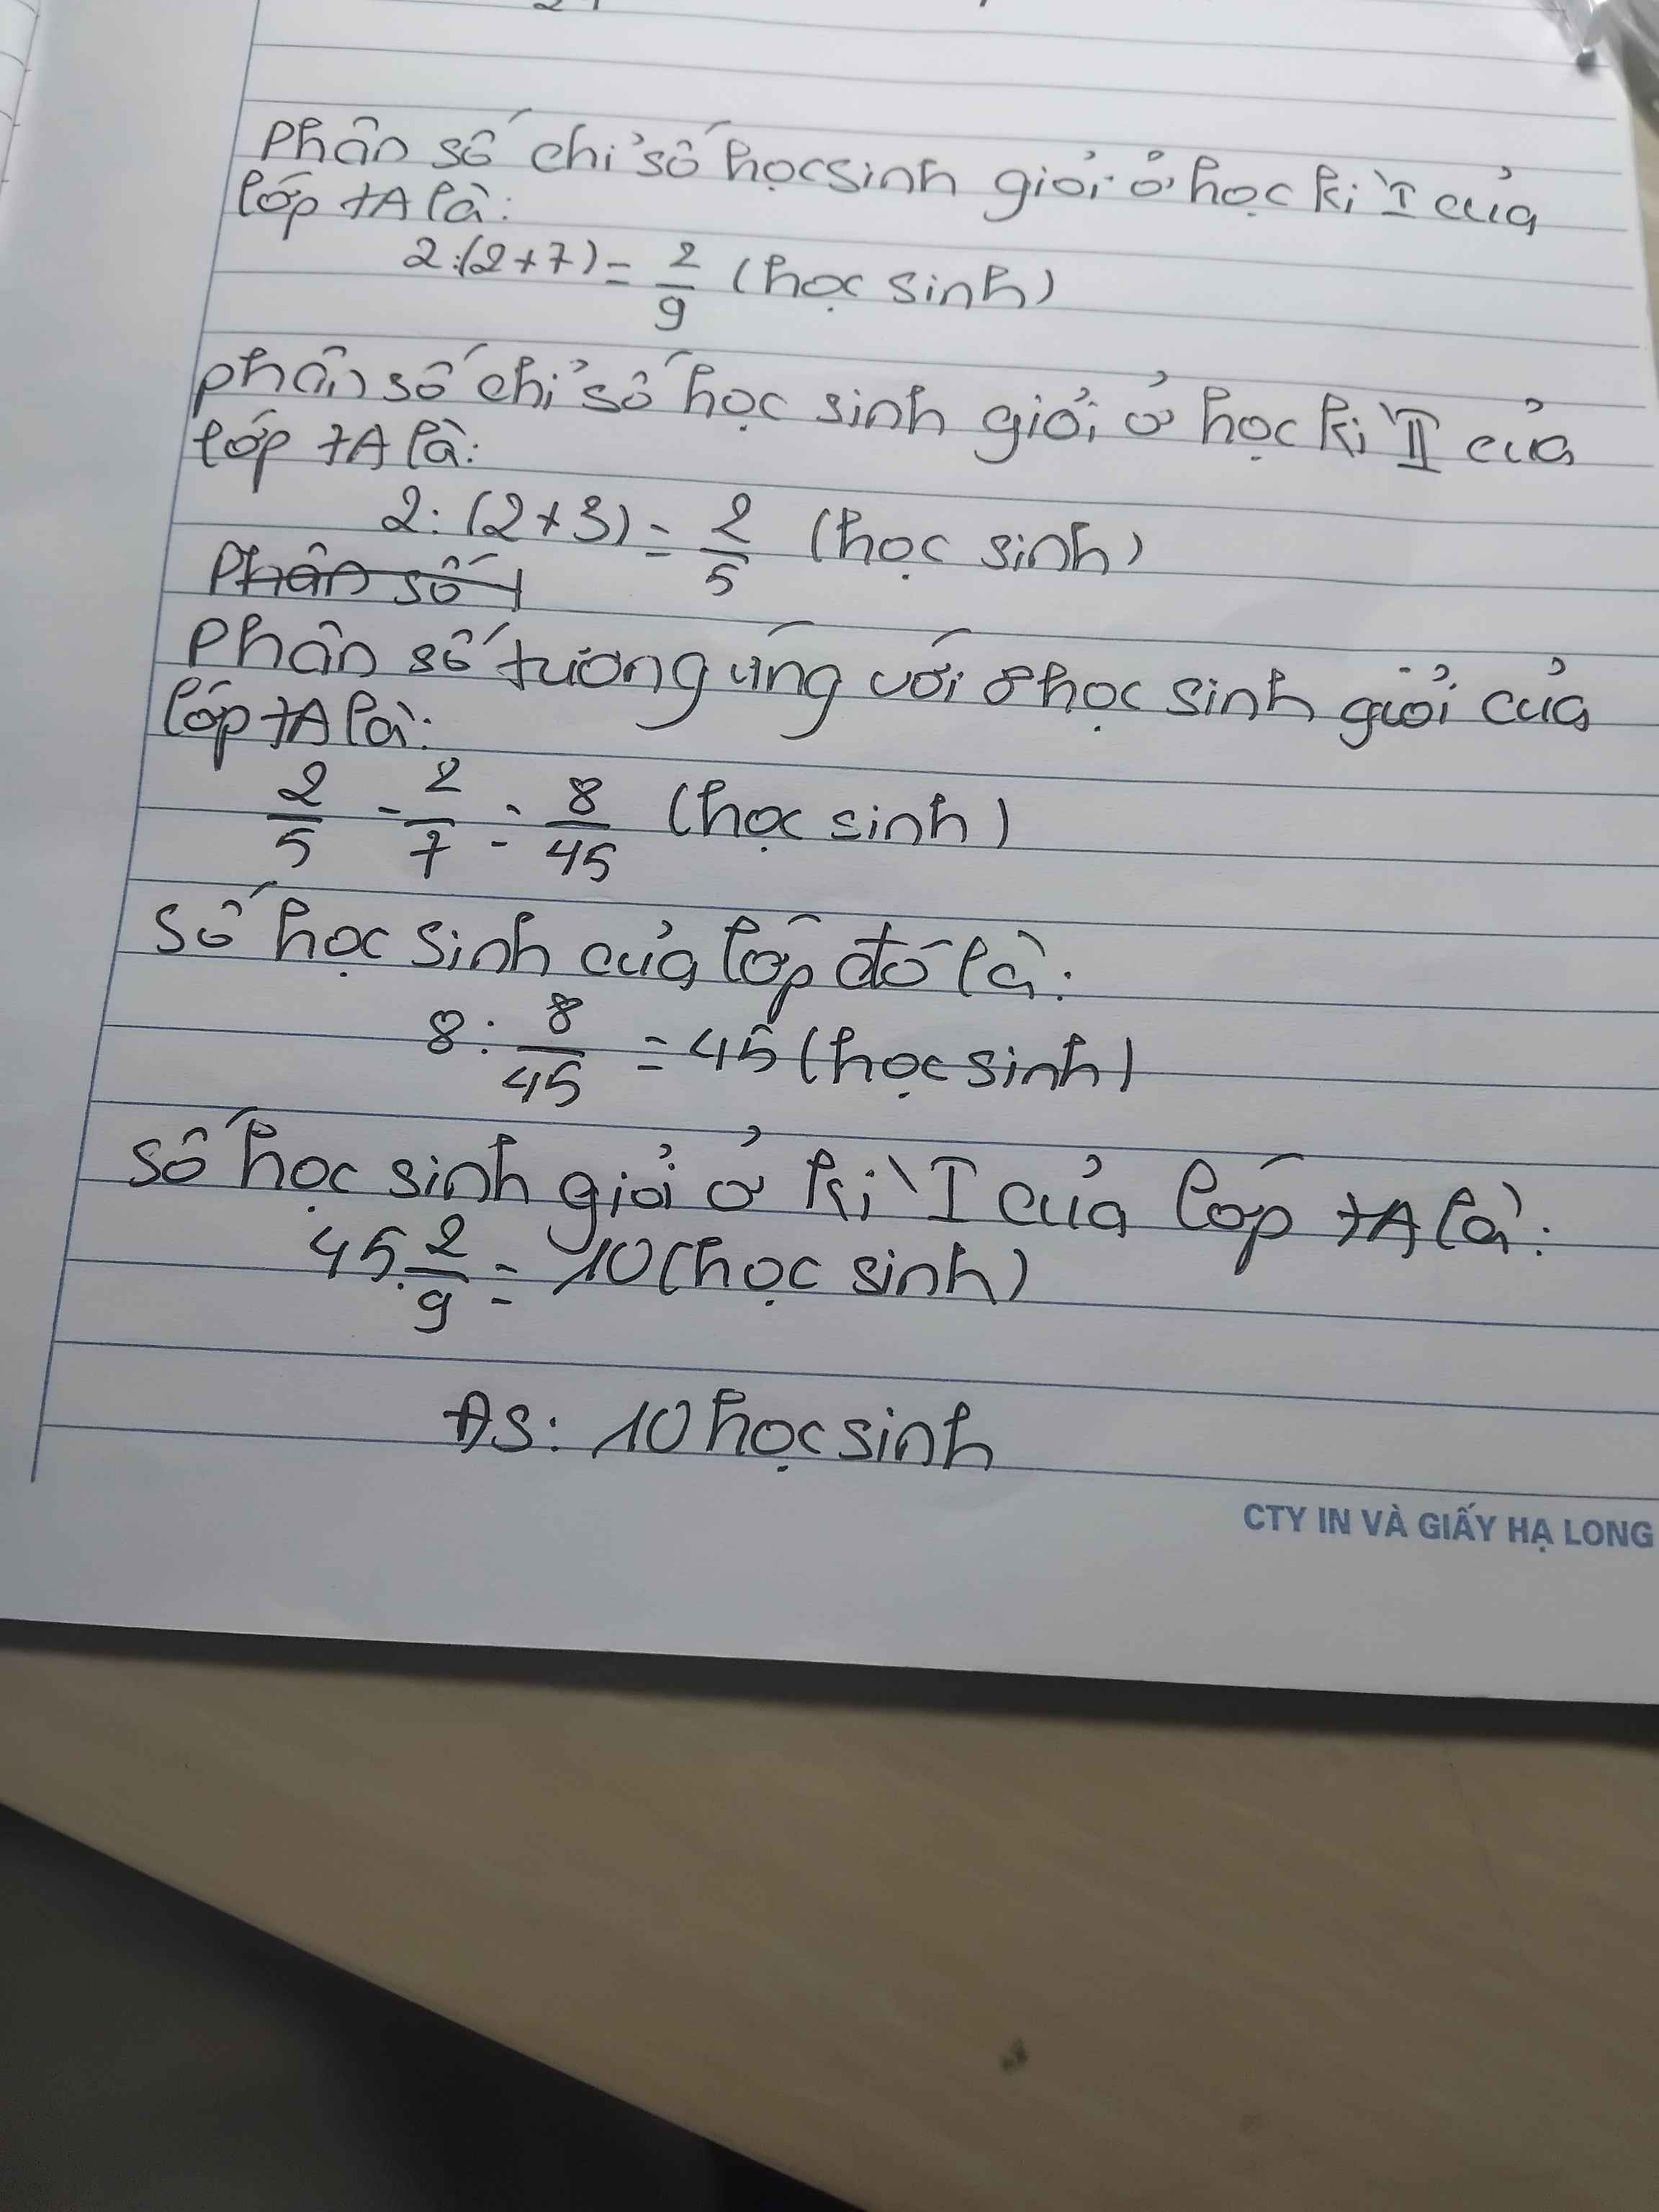 Phân số chỉ số học sinh giỏi ở học kì I của
lớp 7A là:
2:(2+7) = 2/9 (học sinh)
phân số chỉ số học sinh giỏi ở học kì II của
lớp 7A là:
2:(2+3) = 2/5 (học sinh)
Phân số
Phân số tương ứng với 8 học sinh giỏi của
lớp 7A là:
2/5 - 2/7 = 8/45 (học sinh)
Số học sinh của lớp đó là:
8: 8/45 = 45 (học sinh)
Số học sinh giỏi ở kì I của lớp 7A là:
45. 2/9 = 10 (học sinh)
ĐS: 10 học sinh
CTY IN VÀ GIẤY HẠ LONG